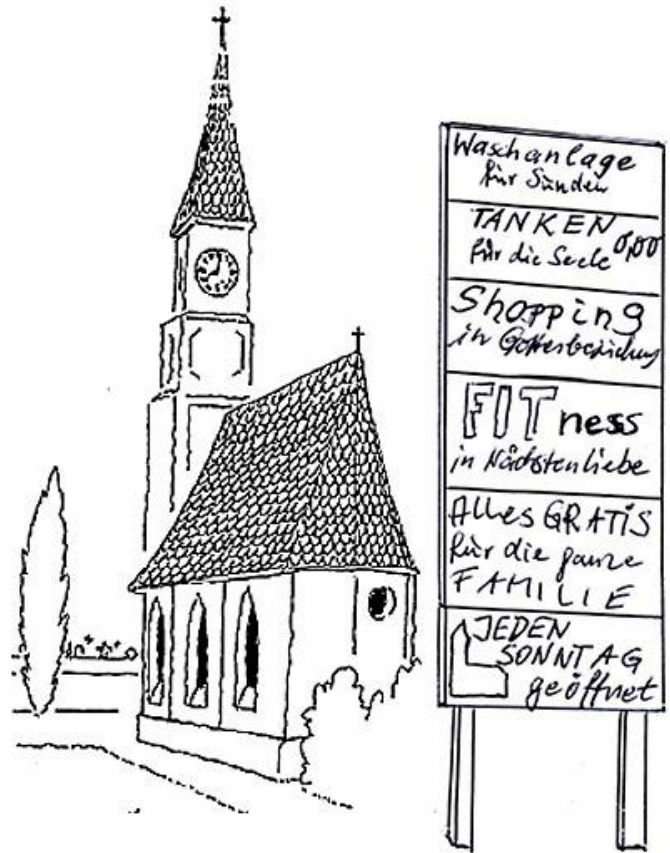 Waschanlage
für Sünden
TANKEN 0,00
für die Seele
Shopping
in Gottesbeziehung
FITness
in Nächstenliebe
Alles GRATIS
für die ganze
FAMILIE
JEDEN
SONNTAG
geöffnet